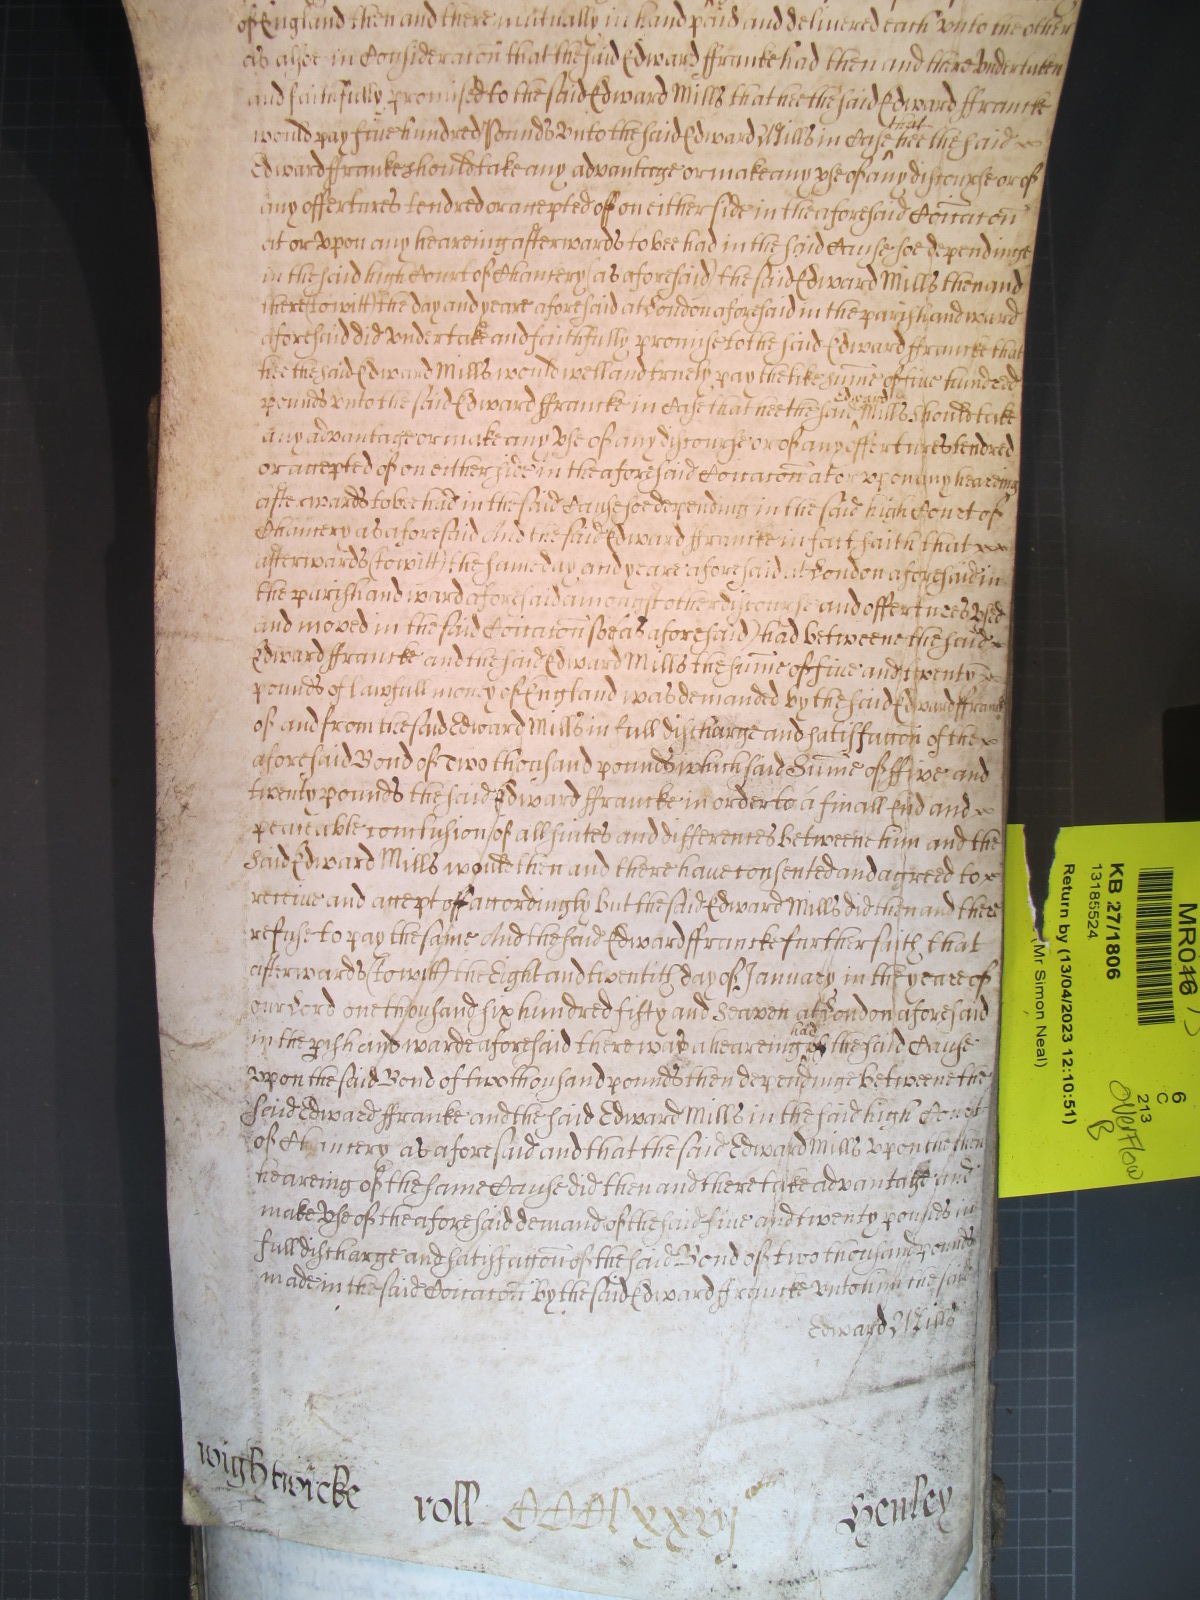 of England then and there mutually in hand paid and delivered each vnto the other
as alsoe in Consideracon that the said Edward ffrancke had then and there vndertaken
and faithfully promised to the said Edward Mills that hee the said Edward ffrancke
would pay fiue hundred Pounds vnto the said Edward Mills in Case that hee the said
Edward ffrancke should take any advantage or make any vse of any discourse or of
any offertures tendred or accepted of on either side in the aforesaid Coicacon
at or vpon any heareing afterwards to bee had in the said Cause soe dependinge
in the said high Court of Chancery (as aforesaid) the said Edward Mills then and
there (to witt) the day and yeare aforesaid at London aforesaid in the parish and ward
aforesaid did vndertake and faithfully promise to the said Edward ffrancke that
hee the said Edward Mills would well and truely pay the like sume of fiue hundred
pounds vnto the said Edward ffrancke in Case that hee the said Edward Mills should take
any advantage or make any vse of any discourse or of any offertures tendred
or accepted of on either side in the aforesaid Coicacon at or vpon any heareing
afterwards to bee had in the said Cause soe depending in the said high Court of
Chancery as aforesaid And the said Edward ffrancke in fact saith that
afterwards (to witt) the same day and yeare aforesaid at London aforesaid in
the parish and ward aforesaid amongst other discourse and offertures vsed
and moved in the said Coicacon soe (as aforesaid) had betweene the said
Edward ffrancke and the said Edward Mills the sume of fiue and twenty
pounds of lawfull money of England was demanded by the said Edward ffrancke
of and from the said Edward Mills in full discharge and satisfaccon of the
aforesaid Bond of Two thousand pounds which said Sume of ffive and
twenty pounds the said Edward ffrancke in order to a finall End and
peaceable conclusion of all suites and differences betweene him and the
said Edward Mills would then and there have consented and agreed to
receiue and accept of accordingly but the said Edward Mills did then and there
refuse to pay the same And the said Edward ffrancke further saith that
afterwards (to witt) the Eight and twentith day of January in the yeare of
our Lord one thousand six hundred fifty and Seaven at London aforesaid
in the pish and warde aforesaid there was a heareing had of the said Cause
vpon the said Bond of two thousand pounds then dependinge betweene the
said Edward ffrancke and the said Edward Mills in the said high Court
of Chancery as aforesaid and that the said Edward Mills vpon the then
heareing of the same Cause did then and there take advantage and
make vse of the aforesaid demand of the said fiue and twenty pounds in
full discharge and satisfaccon of the said Bond of two thousand pounds
made in the said Coicacon by the said Edward ffrancke vnto him the said
Edward Mills
Wightwicke roll CCClxxvj Henley
MR046
KB 27/1806
13185524
Return by (13/04/2023 12:10:51)
(Mr Simon Neal)
6
C
213
Overflow
B